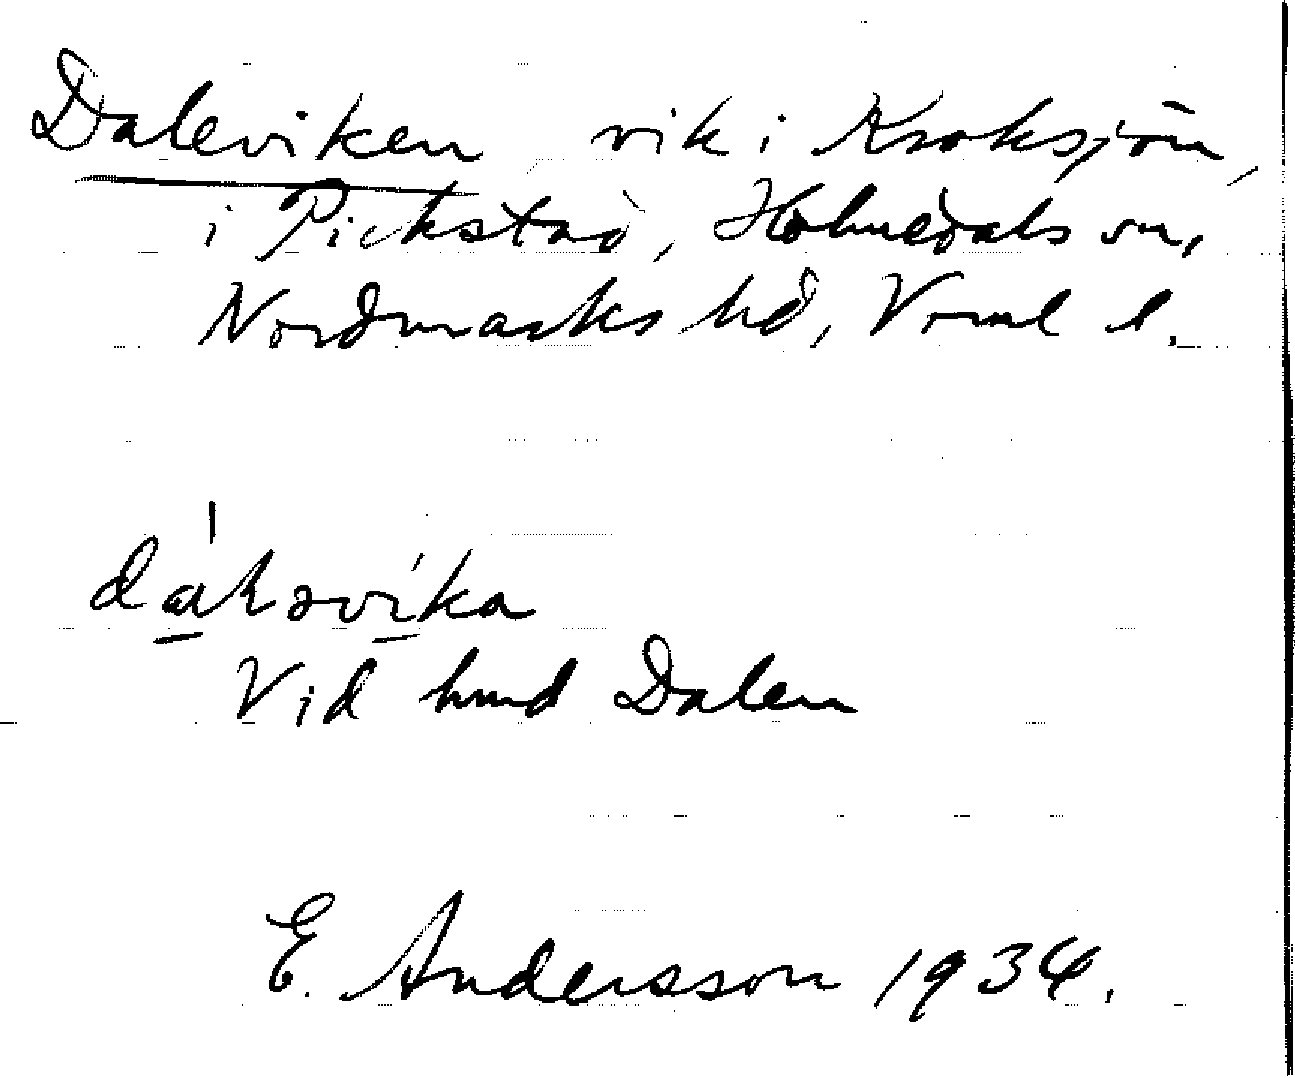 Daleviken vik i Kroksjön,
i Pickstad, Holmedals sn,
Nordmarks hd, Verml l.
Vid hmd Dalen
E. Andersson 1934.